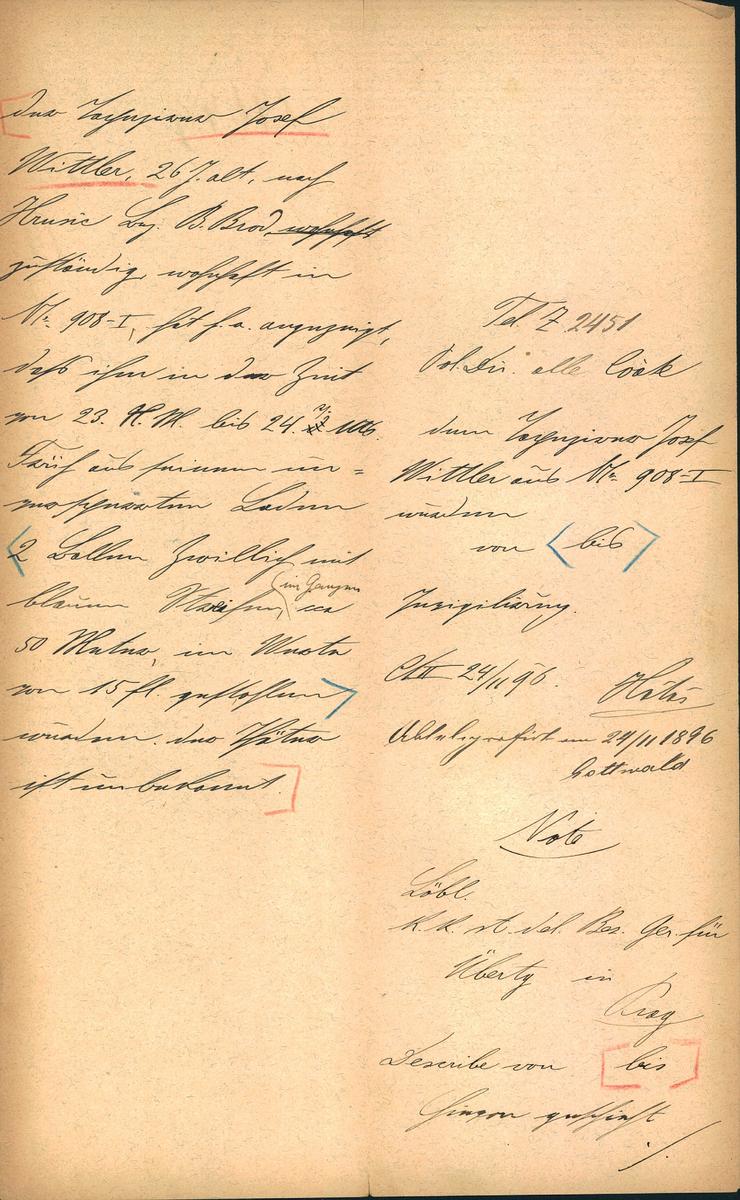 Der Tapezierer Josef
Wittler, 26 J. alt, nach
Hrusic Bez. B. Brod, wohnhaft
zuständig, wohnhaft in
Nr. 908-I, hat h. a. angezeigt,
daß ihm in der Zeit
von 23. h. M. bis 24.
Früh aus seinem un=
versperrten Laden
2 Ballen Zwillich mit
blauen Streifen, im Ganzen cca
50 Meter, im Werte
von 15 fl. gestohlen
wurden. Der Thäter
ist unbekannt.
Tel. Z 2451
Pol. Dir. alle Coäte
dem Tapezierer Josef
Wittler aus Nr. 908-I
wurden
von bis
Invigilirung.
24/11 96.
Abtelegrafirt am 24/11 1896
Gottwald
Note
Löbl.
K. k. st. del. Bez. Ger. für
Übertg in
Prag
Describe von bis
Hievon geschieht